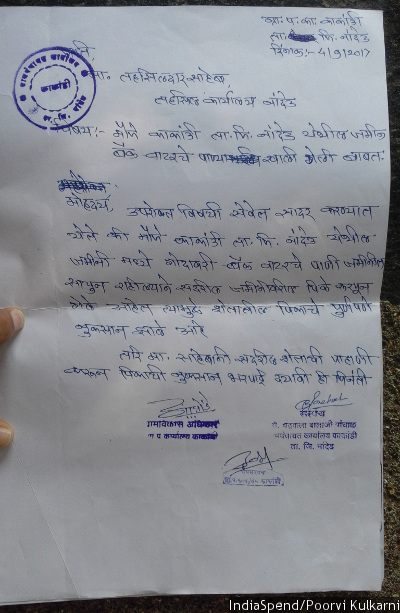 ग्रा. प. का. काकांडी
ता. जि. नांदेड
दिनांक:- 4/9/2017
प्रति,
ग्रामपंचायत कार्यालय
काकांडी
ता. जि. नांदेड
मा. तहसिलदार साहेब
तहसिल कार्यालय नांदेड
विषय:- मौजे काकांडी ता. जि. नांदेड येथील जमीन
बॅक वाटरचे पाण्या खाली गेली बाबत.
महोदय,
उपरोक्त विषयी सेवेत सादर करण्यात
येते की मौजे काकांडी ता. जि. नांदेड येथील
जमीनी मध्ये गोदावरी बॅक वाटरचे पाणी जमीनीत
राहील्याने सदरील पिके करपुन
गेले आहेत त्यामुळे शेतातील पिकाचे पुर्णपणे
नुकसान झाले आहे
तरी मा. साहेबांनी सदरील शेताची पाहणी
करून पिकाची नुकसान भरपाई द्यावी ही विनंती
ग्रामविकास अधिकारी
ग्रा प कार्यालय काकांडी
सरपंच
बालाजी
ग्रामपंचायत कार्यालय काकांडी
ता. जि. नांदेड
IndiaSpend/Poorvi Kulkarni